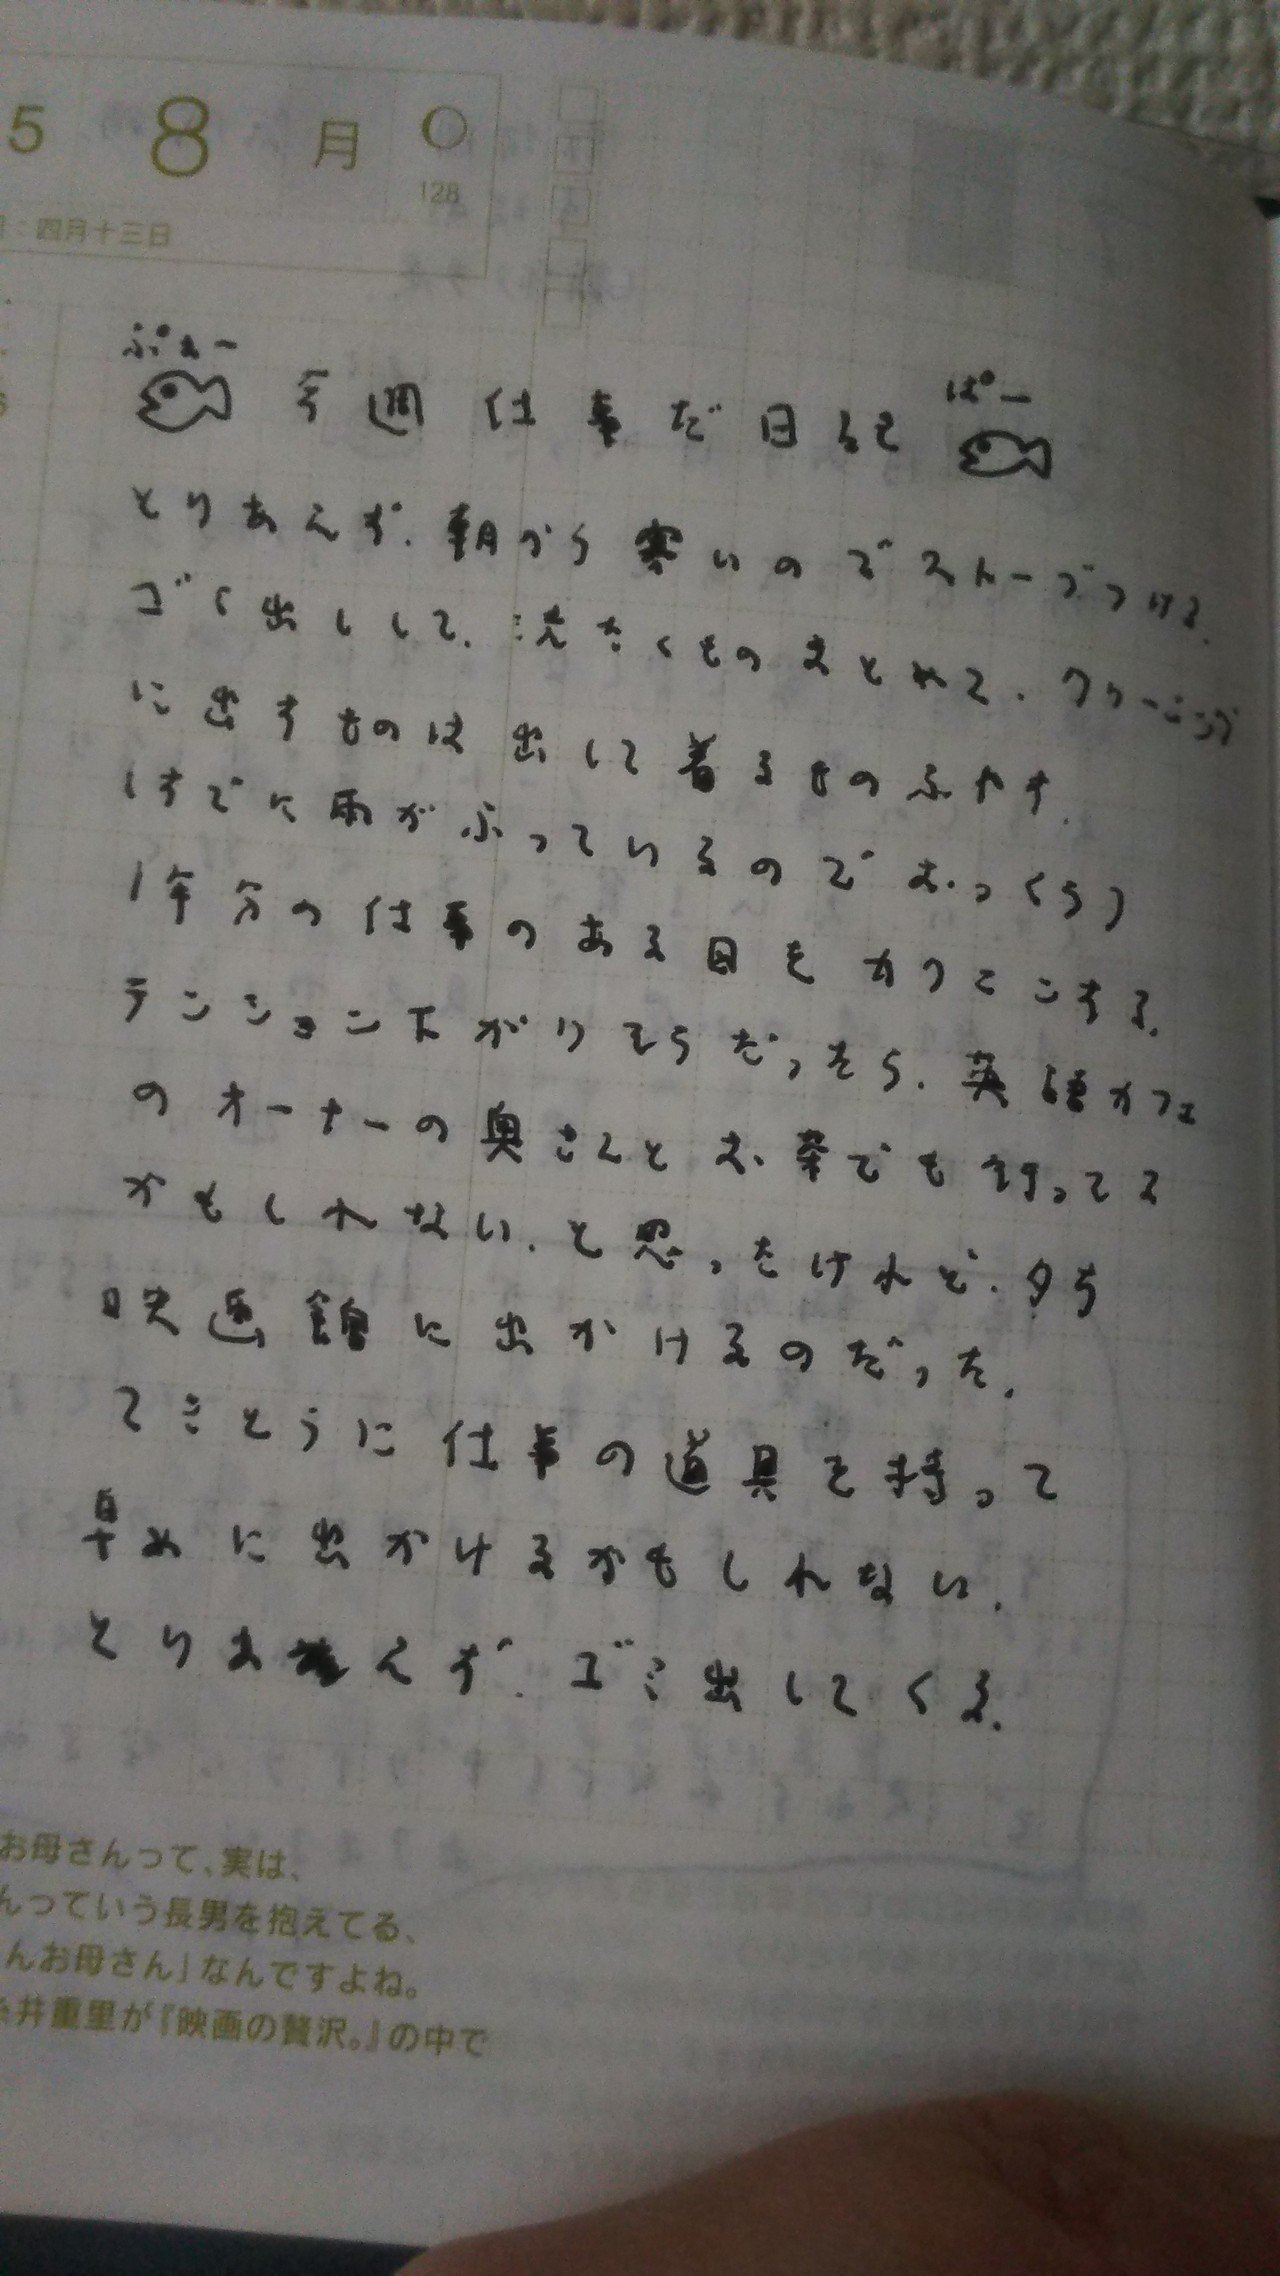 5 8 月
128
四月十三日
ぷぁー ぱー
今週仕事だ日記
とりあえず、朝から寒いのでストーブつける。
ゴミ出しして、洗たくものまとめて、クリーニング
に出すものは出して着るものふやす。
(すでに雨がふっているのでおっくう)
1年分の仕事のある日をかっこする。
テンション下がりそうだったら、英語カフェ
のオーナーの奥さんとお茶でも行ってる
かもしれない、と思ったけれど、夕方
映画館に出かけるのだった。
てきとうに仕事の道具を持って
早めに出かけるかもしれない。
とりあえず、ゴミ出してくる。
お母さんって、実は、
んっていう長男を抱えてる、
んお母さん」なんですよね。
糸井重里が『映画の贅沢。』の中で